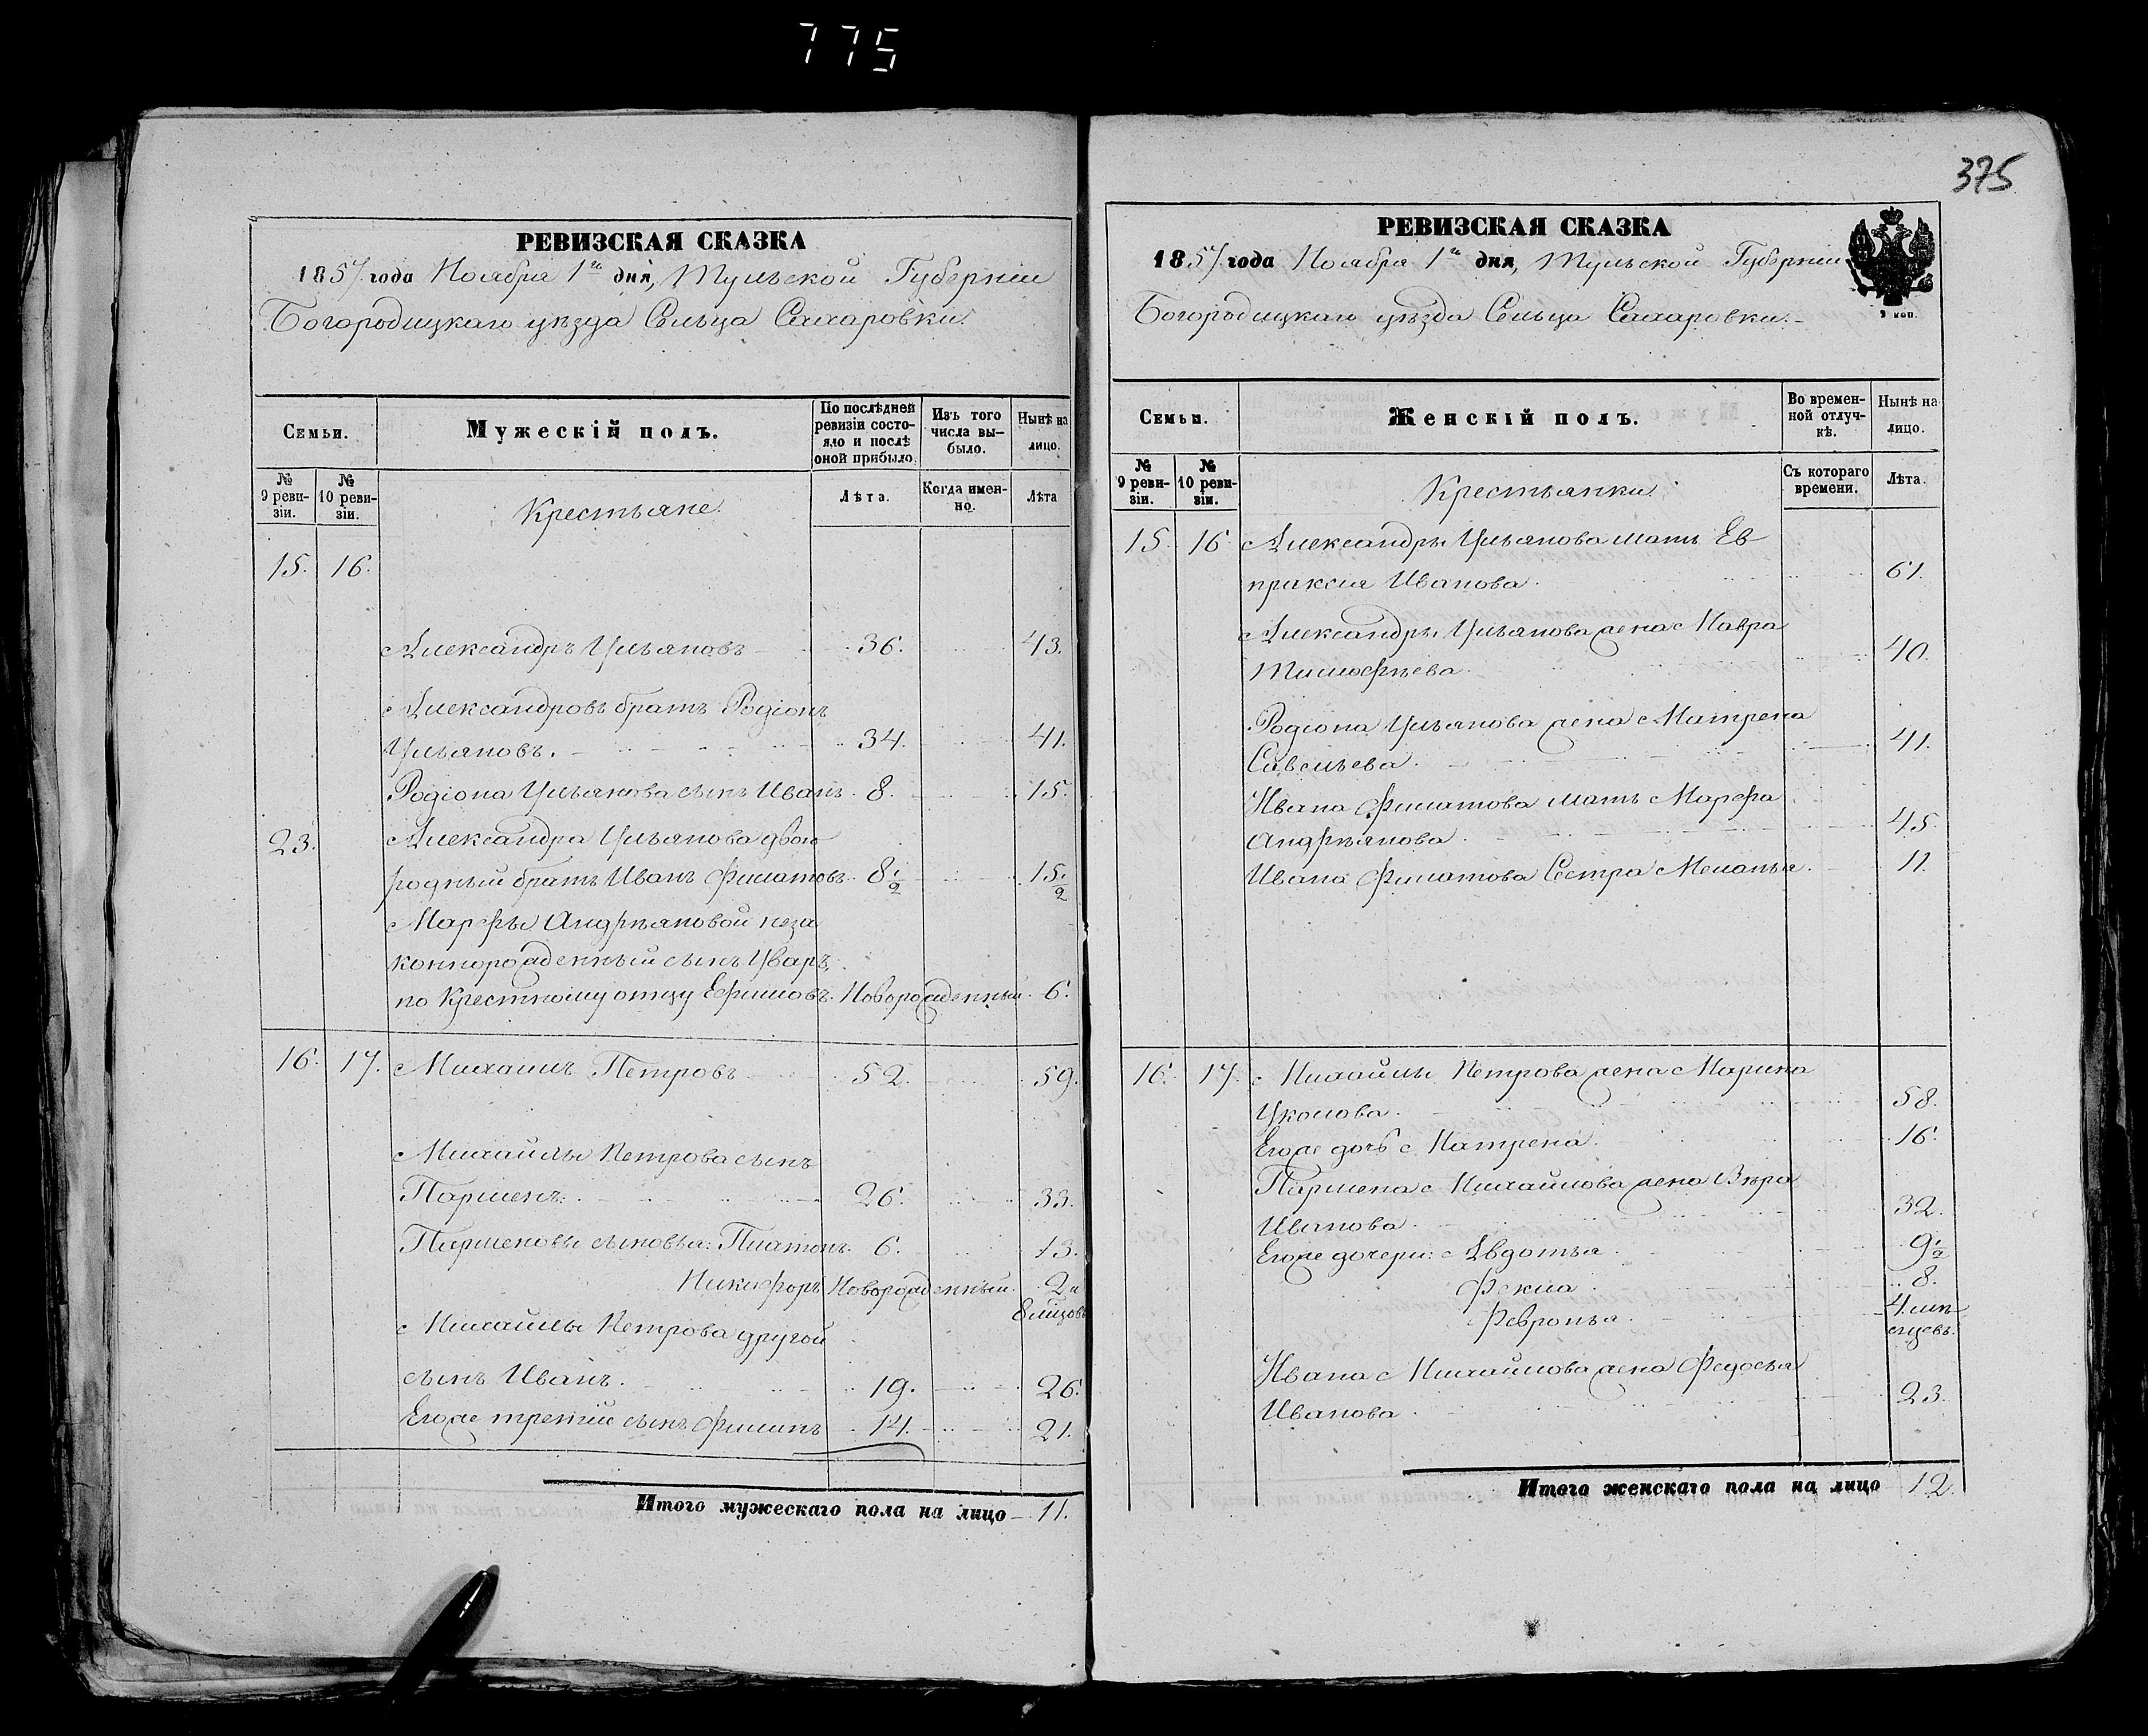 775
375
РЕВИЗСКАЯ СКАЗКА
1857 года Ноября 1го дня, Тульской Губерніи
Богородицкаго уѣзда Сельца Сахаровки.
Семьи.
Мужескій полъ.
По послѣдней
ревизіи состо-
яло и послѣ
оной прибыло.
Изъ того
числа вы-
было.
Нынѣ на
лицо.
№
9 реви-
зіи.
№
10 реви-
зіи.
Крестьяне.
Лѣта.
Когда имен-
но.
Лѣта
15. 16.
Александръ Ульяновъ 36. 43.
Александровъ братъ Родіонъ
Ульяновъ. 34. 41.
Родіона Ульянова сынъ Иванъ. 8. 15.
23. Александра Ульянова двою
родный братъ Иванъ Филатовъ 8½ 15½
Марфы Андреяновой неза
коннорожденный сынъ Уваръ,
по Крестному отцу Ефимовъ. Новорожденный. 6.
16. 17. Михаилъ Петровъ 52. 59.
Михайлы Петрова сынъ
Парменъ. 26. 33.
Парменовы сыновья: Платонъ. 6. 13.
Никифоръ Новорожденный. 2 и
8 мцовъ
Михайлы Петрова другой
сынъ Иванъ. 19. 26.
Егоже третій сынъ Филипъ 14. 21.
Итого мужескаго пола на лицо 11.
РЕВИЗСКАЯ СКАЗКА
1857 года Ноября 1го дня, Тульской Губерніи
Богородицкаго уѣзда Сельца Сахаровки.
Семьи.
Женскій полъ.
Во времен-
ной отлуч-
кѣ.
Нынѣ на
лицо.
№
9 реви-
зіи.
№
10 реви-
зіи.
Крестьянки.
Съ котораго
времени.
Лѣта.
15. 16 Александры Ульянова мать Ев
праксія Иванова. 61.
Александры Ульянова жена Мавра
Тимофѣева. 40.
Родіона Ульянова жена Матрена
Савельева. 41.
Ивана Филатова мать Марфа
Андреянова. 45.
Ивана Филатова Сестра Меланья. 11.
16. 17. Михайлы Петрова жена Марина
Уколова. 58.
Егоже дочь Матрена. 16.
Пармена Михайлова жена Вѣра
Иванова. 32.
Егоже дочери: Авдотья. 9½
Фекла. 8.
Февронья. 4 мѣ
сяцевъ.
Ивана Михайлова жена Федосья
Иванова 23.
Итого женскаго пола на лицо 12.